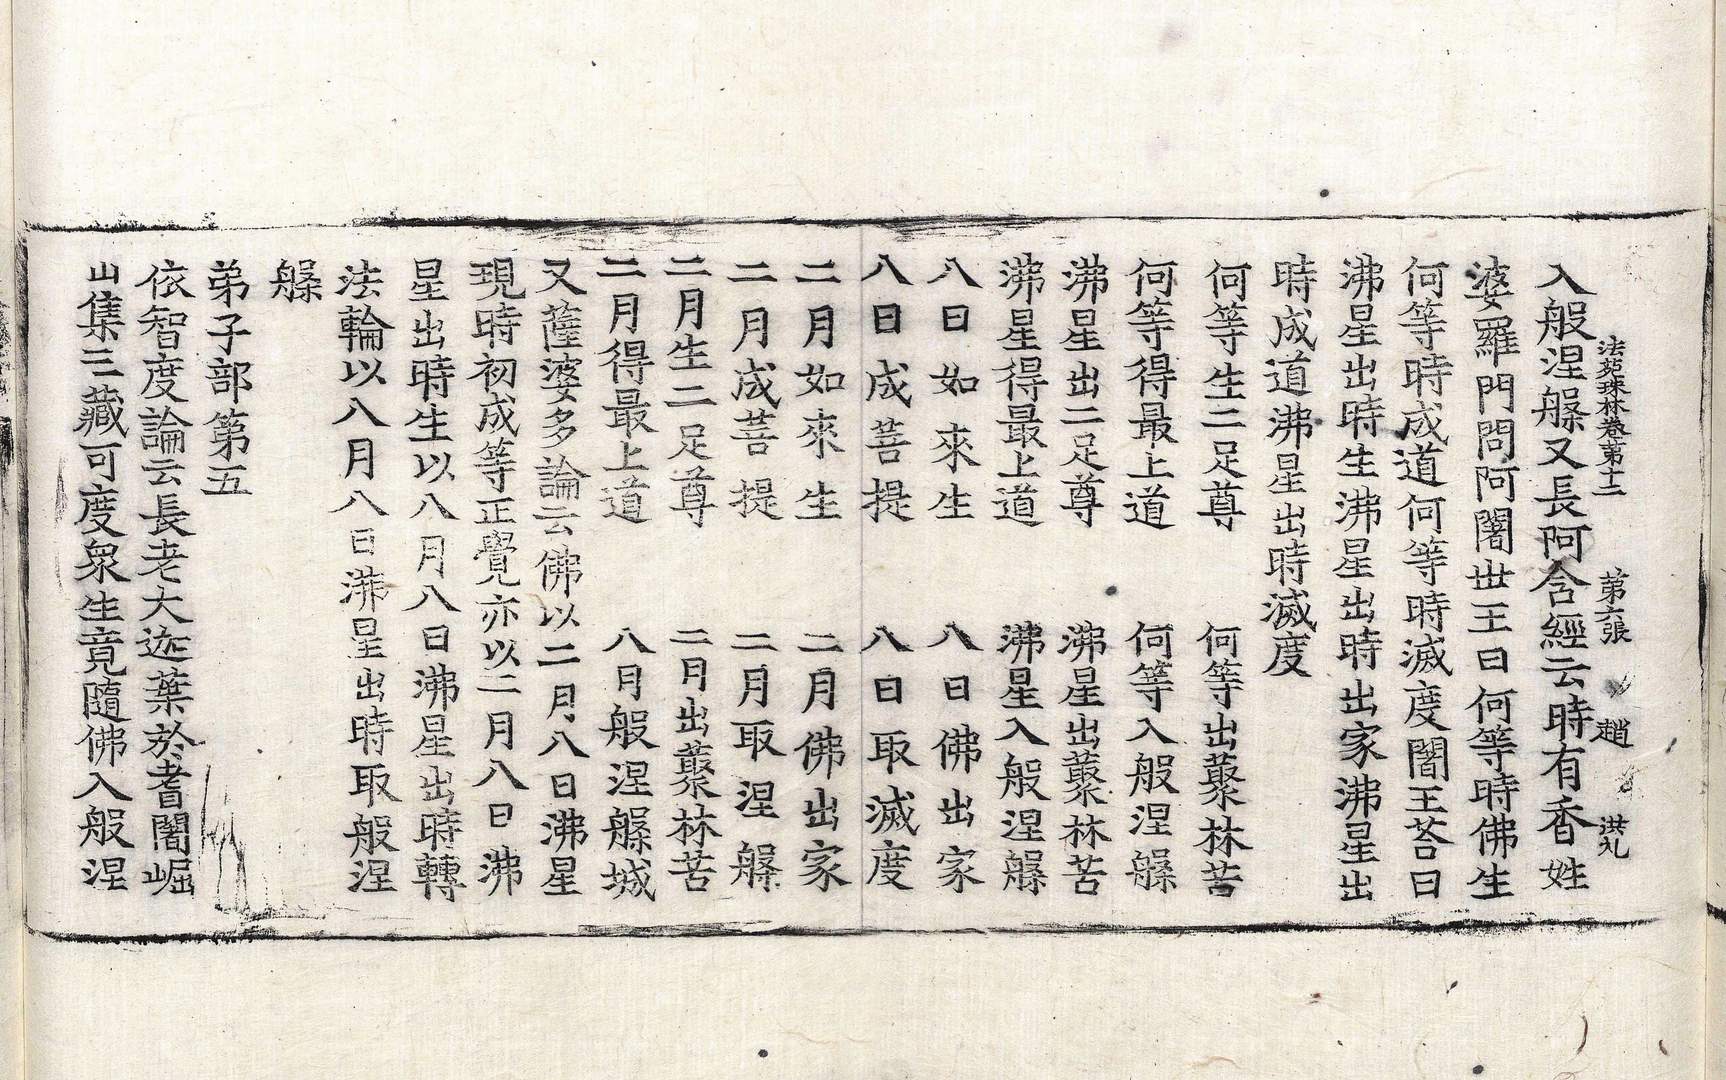 法苑珠林卷第十二　第六張　趙　洪九
入般涅槃又長阿含經云時有香姓
婆羅門問阿闍世王曰何等時佛生
何等時成道何等時滅度闍王荅曰
沸星出時生沸星出時出家沸星出
時成道沸星出時滅度
何等生二足尊　何等出藂林苦
何等得最上道　何等入般涅槃
沸星出二足尊　沸星出藂林苦
沸星得最上道　沸星入般涅槃
八日如來生　八日佛出家
八日成菩提　八日取滅度
二月如來生　二月佛出家
二月成菩提　二月取涅槃
二月生二足尊　二月出藂林苦
二月得最上道　八月般涅槃城
又薩婆多論云佛以二月八日沸星
現時初成等正覺亦以二月八日沸
星出時生以八月八日沸星出時轉
法輪以八月八日沸星出時取般涅
槃
弟子部第五
依智度論云長老大迦葉於耆闍崛
山集三藏可度眾生竟隨佛入般涅